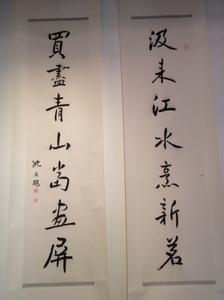 汲来江水烹新茗
買盡青山當畫屏